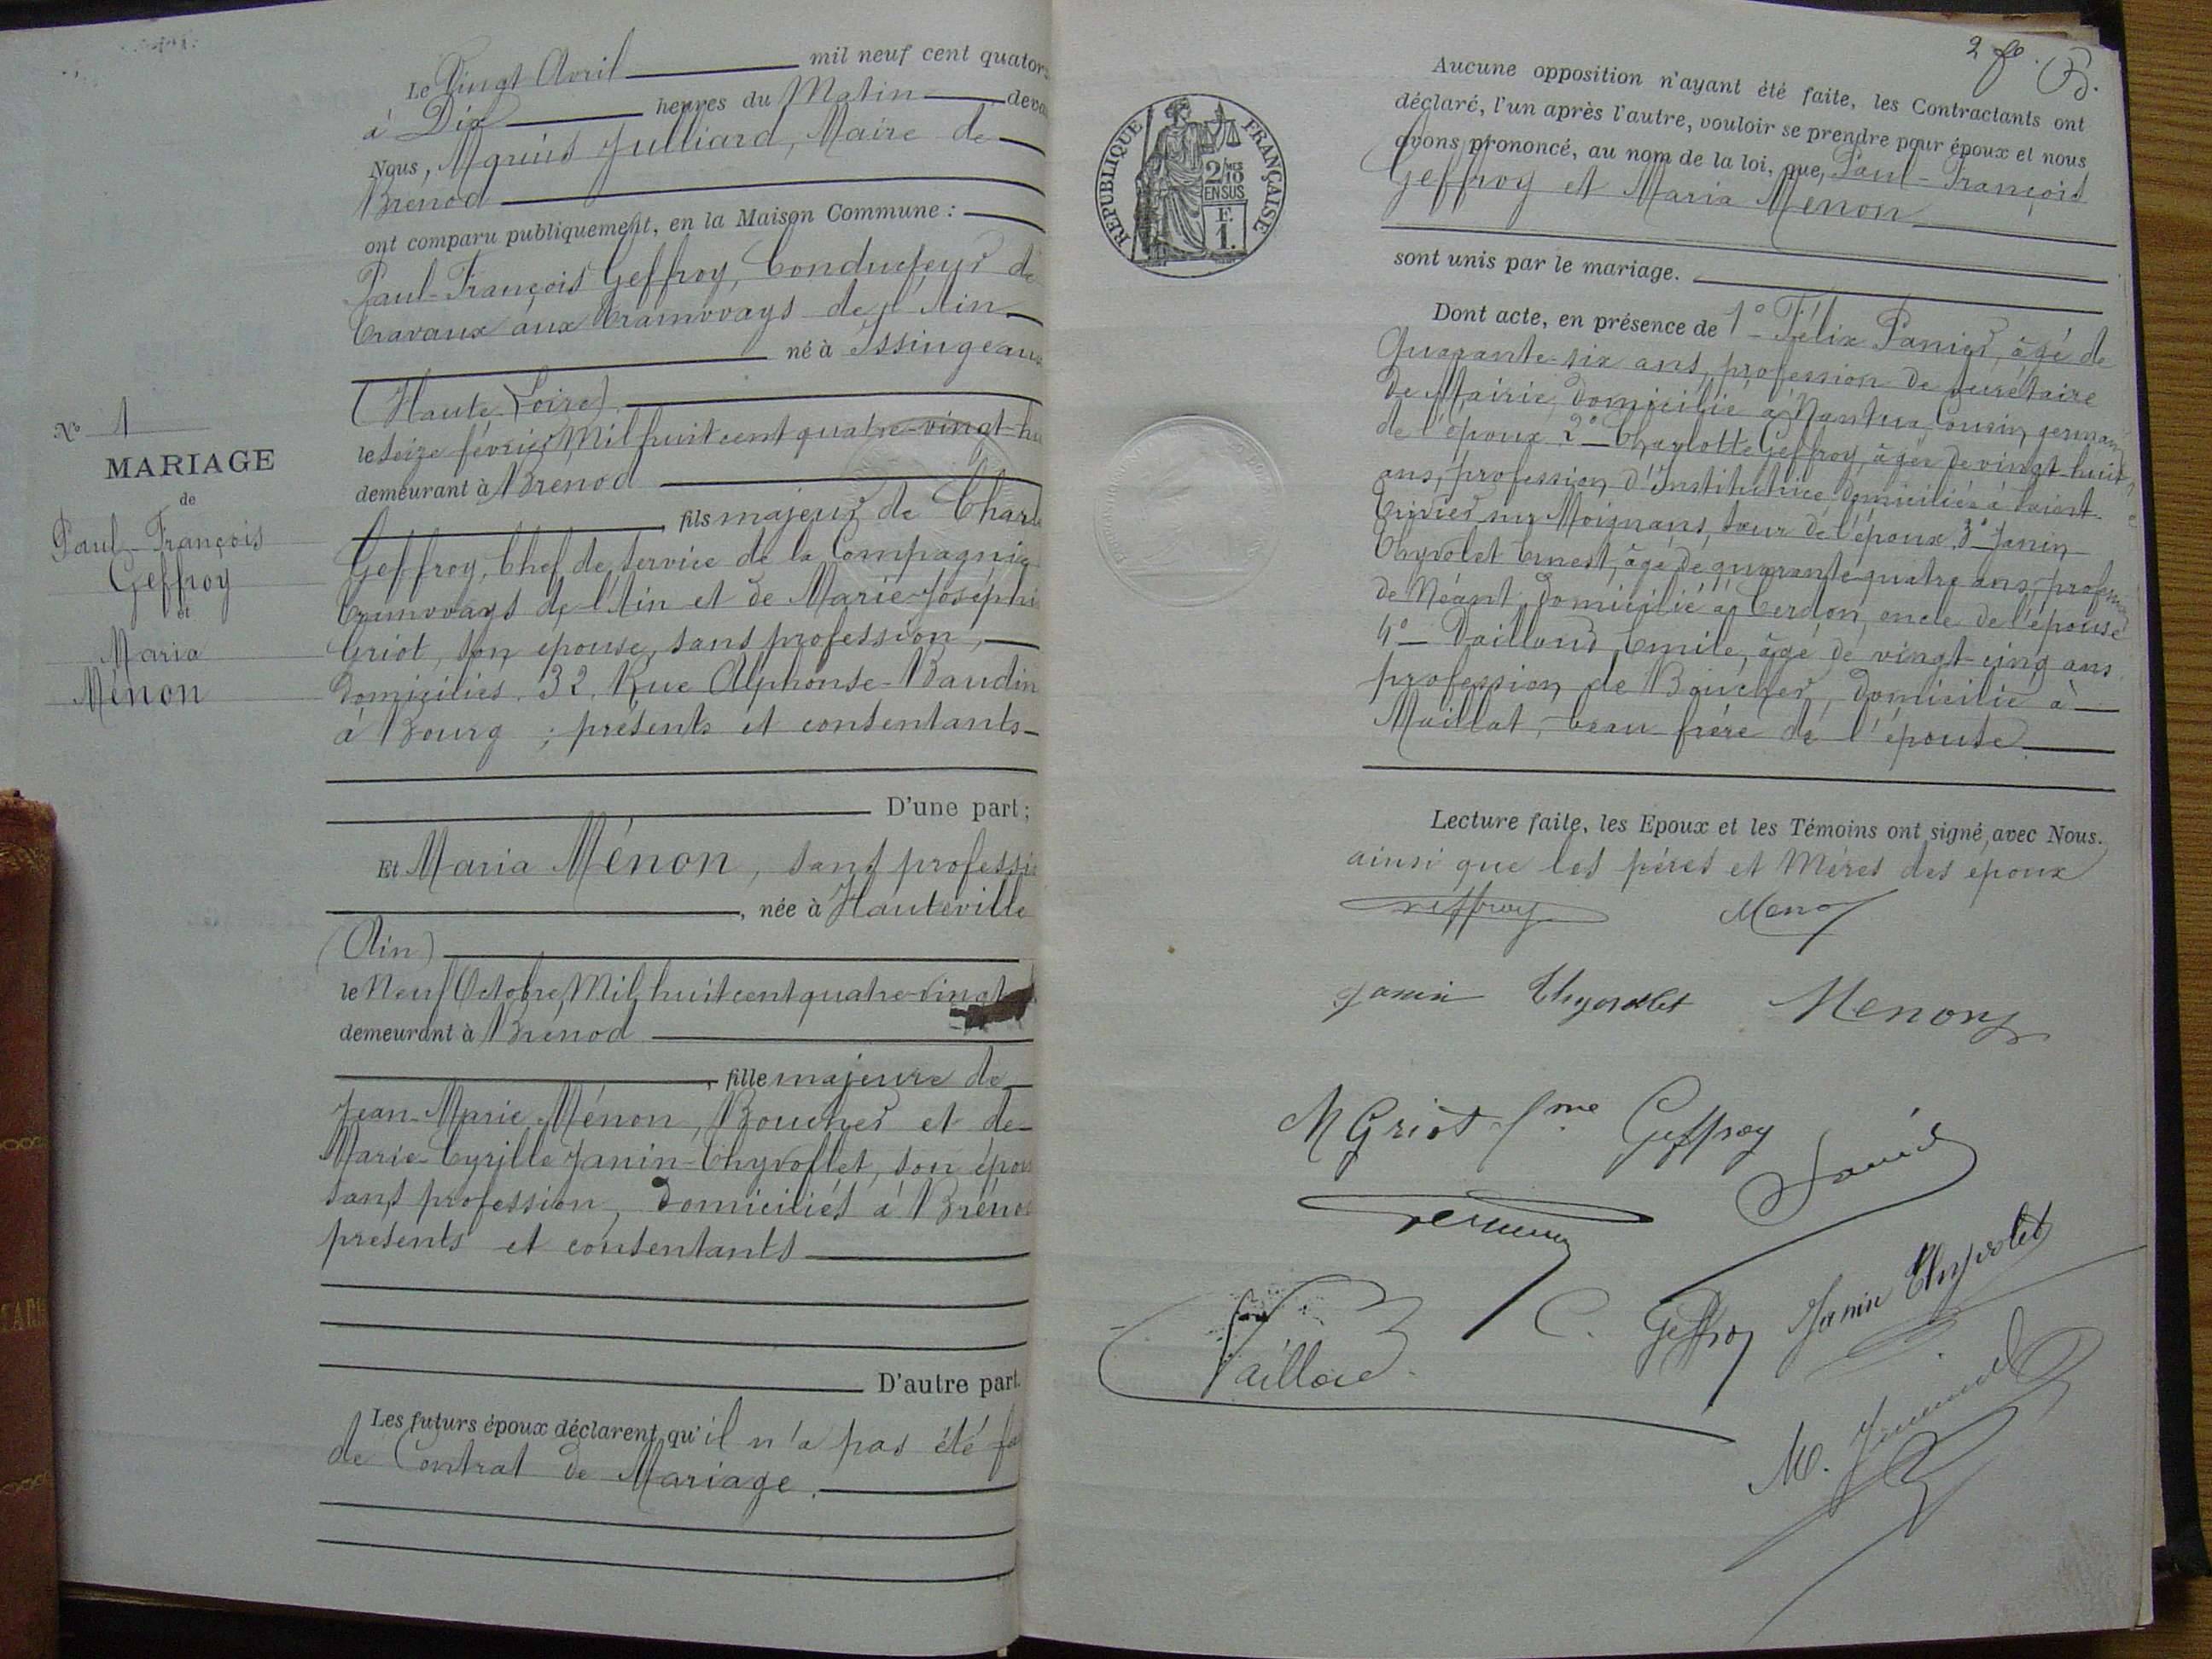 Le Vingt Avril mil neuf cent quator
à Dix heures du Matin deva
Nous, Marius Julliard, Maire de
Brenod
ont comparu publiquement, en la Maison Commune :
Paul-François Geffroy, Conducteur de
travaux aux tramways de l'Ain
né à Issingeaux
(Haute Loire)
le Seize février Mil huit cent quatre-vingt-hu
demeurant à Brenod
fils majeur de Charle
Geffroy, Chef de Service de la Compagnie
tramways de l'Ain et de Marie-Joséphi
Griot, son épouse, sans profession,
domiciliés 32, Rue Alphonse-Baudin
à Bourg ; présents et consentants
D'une part ;
N° 1
MARIAGE
de
Paul-François
Geffroy
et
Maria
Ménon
Et Maria Ménon, sans professi
, née à Hauteville
(Ain)
le Neuf Octobre Mil huit cent quatre-vingt
demeurant à Brénod
, fille majeure de
Jean-Marie Ménon, Boucher et de
Marie-Cyrille Janin-Thyvollet, son épou
sans profession, domiciliés à Bréno
présents et consentants
D'autre part.
Les futurs époux déclarent qu'il n'a pas été fa
de Contrat de Mariage.
2 fe.
RÉPUBLIQUE FRANÇAISE
2/10 EN SUS
F. 1.
Aucune opposition n'ayant été faite, les Contractants ont
déclaré, l'un après l'autre, vouloir se prendre pour époux et nous
avons prononcé, au nom de la loi, que, Paul-François
Geffroy et Maria Ménon
sont unis par le mariage.
Dont acte, en présence de 1° Félix Panier, âgé de
Quarante-six ans, profession de Secrétaire
de Mairie, domicilié à Nantua, Cousin germain
de l'époux 2° Charlotte Geffroy, âgée de vingt-huit
ans, profession d'Institutrice domiciliée à Saint-
Trivier sur Moignans, sœur de l'époux. 3° Janin
Thyvolet Ernest, âgé de quarante-quatre ans, profession
de Néant domicilié à Cerdon, oncle de l'épouse
4° Vailloud Emile, âgé de vingt-cinq ans
profession de Boucher, domicilié à
Maillat, beau-frère de l'épouse
Lecture faite, les Epoux et les Témoins ont signé, avec Nous.
ainsi que les pères et Mères des époux
Geffroy Menon
Janin Thyvollet Menon
M Griot fme Geffroy
Panier
C. Geffroy Janin Thyvolet
Vailloud